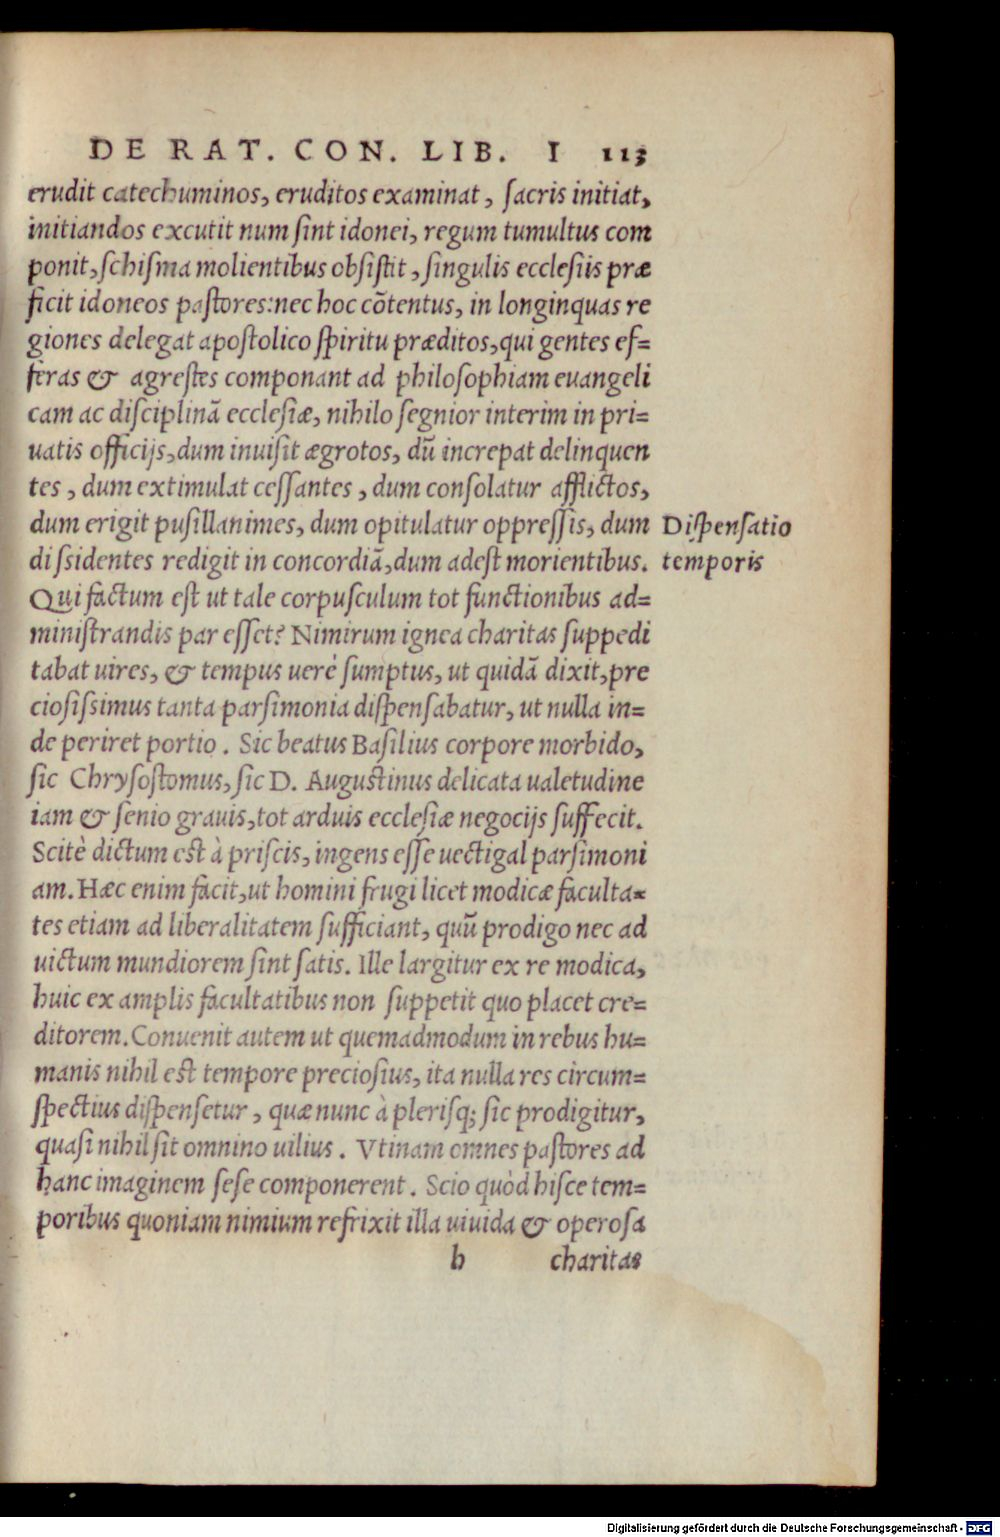 DE RAT. CON. LIB. I 113
erudit catechuminos, eruditos examinat, ſacris initiat,
initiandos excutit num ſint idonei, regum tumultus com
ponit, ſchiſma molientibus obſiſtit, ſingulis eccleſiis præ
ficit idoneos paſtores: nec hoc cõtentus, in longinquas re
giones delegat apoſtolico ſpiritu præditos, qui gentes ef=
feras & agreſtes componant ad philoſophiam euangeli
cam ac diſciplinã eccleſiæ, nihilo ſegnior interim in pri=
uatis officijs, dum inuiſit ægrotos, dũ increpat delinquen
tes, dum extimulat ceſſantes, dum conſolatur afflictos,
dum erigit puſillanimes, dum opitulatur oppreſſis, dum
diſſidentes redigit in concordiã, dum adeſt morientibus.
Dispenſatio
temporis
Qui factum eſt ut tale corpuſculum tot functionibus ad=
miniſtrandis par eſſet? Nimirum ignea charitas ſuppedi
tabat uires, & tempus uerè ſumptus, ut quidã dixit, pre
cioſiſsimus tanta parſimonia diſpenſabatur, ut nulla in=
de periret portio. Sic beatus Baſilius corpore morbido,
ſic Chryſoſtomus, ſic D. Auguſtinus delicata ualetudine
iam & ſenio grauis, tot arduis eccleſiæ negocijs ſuffecit.
Scitè dictum eſt à priſcis, ingens eſſe uectigal parſimoni
am. Hæc enim facit, ut homini frugi licet modicæ faculta=
tes etiam ad liberalitatem ſufficiant, quũ prodigo nec ad
uictum mundiorem ſint ſatis. Ille largitur ex re modica,
huic ex amplis facultatibus non ſuppetit quo placet cre=
ditorem. Conuenit autem ut quemadmodum in rebus hu=
manis nihil eſt tempore precioſius, ita nulla res circum=
ſpectius diſpenſetur, quæ nunc à pleriſq; ſic prodigitur,
quaſi nihil ſit omnino uilius. Vtinam omnes paſtores ad
hanc imaginem ſeſe componerent. Scio quòd hiſce tem=
poribus quoniam nimium refrixit illa uiuida & operoſa
h charitas
Digitalisierung gefördert durch die Deutsche Forschungsgemeinschaft - DFG